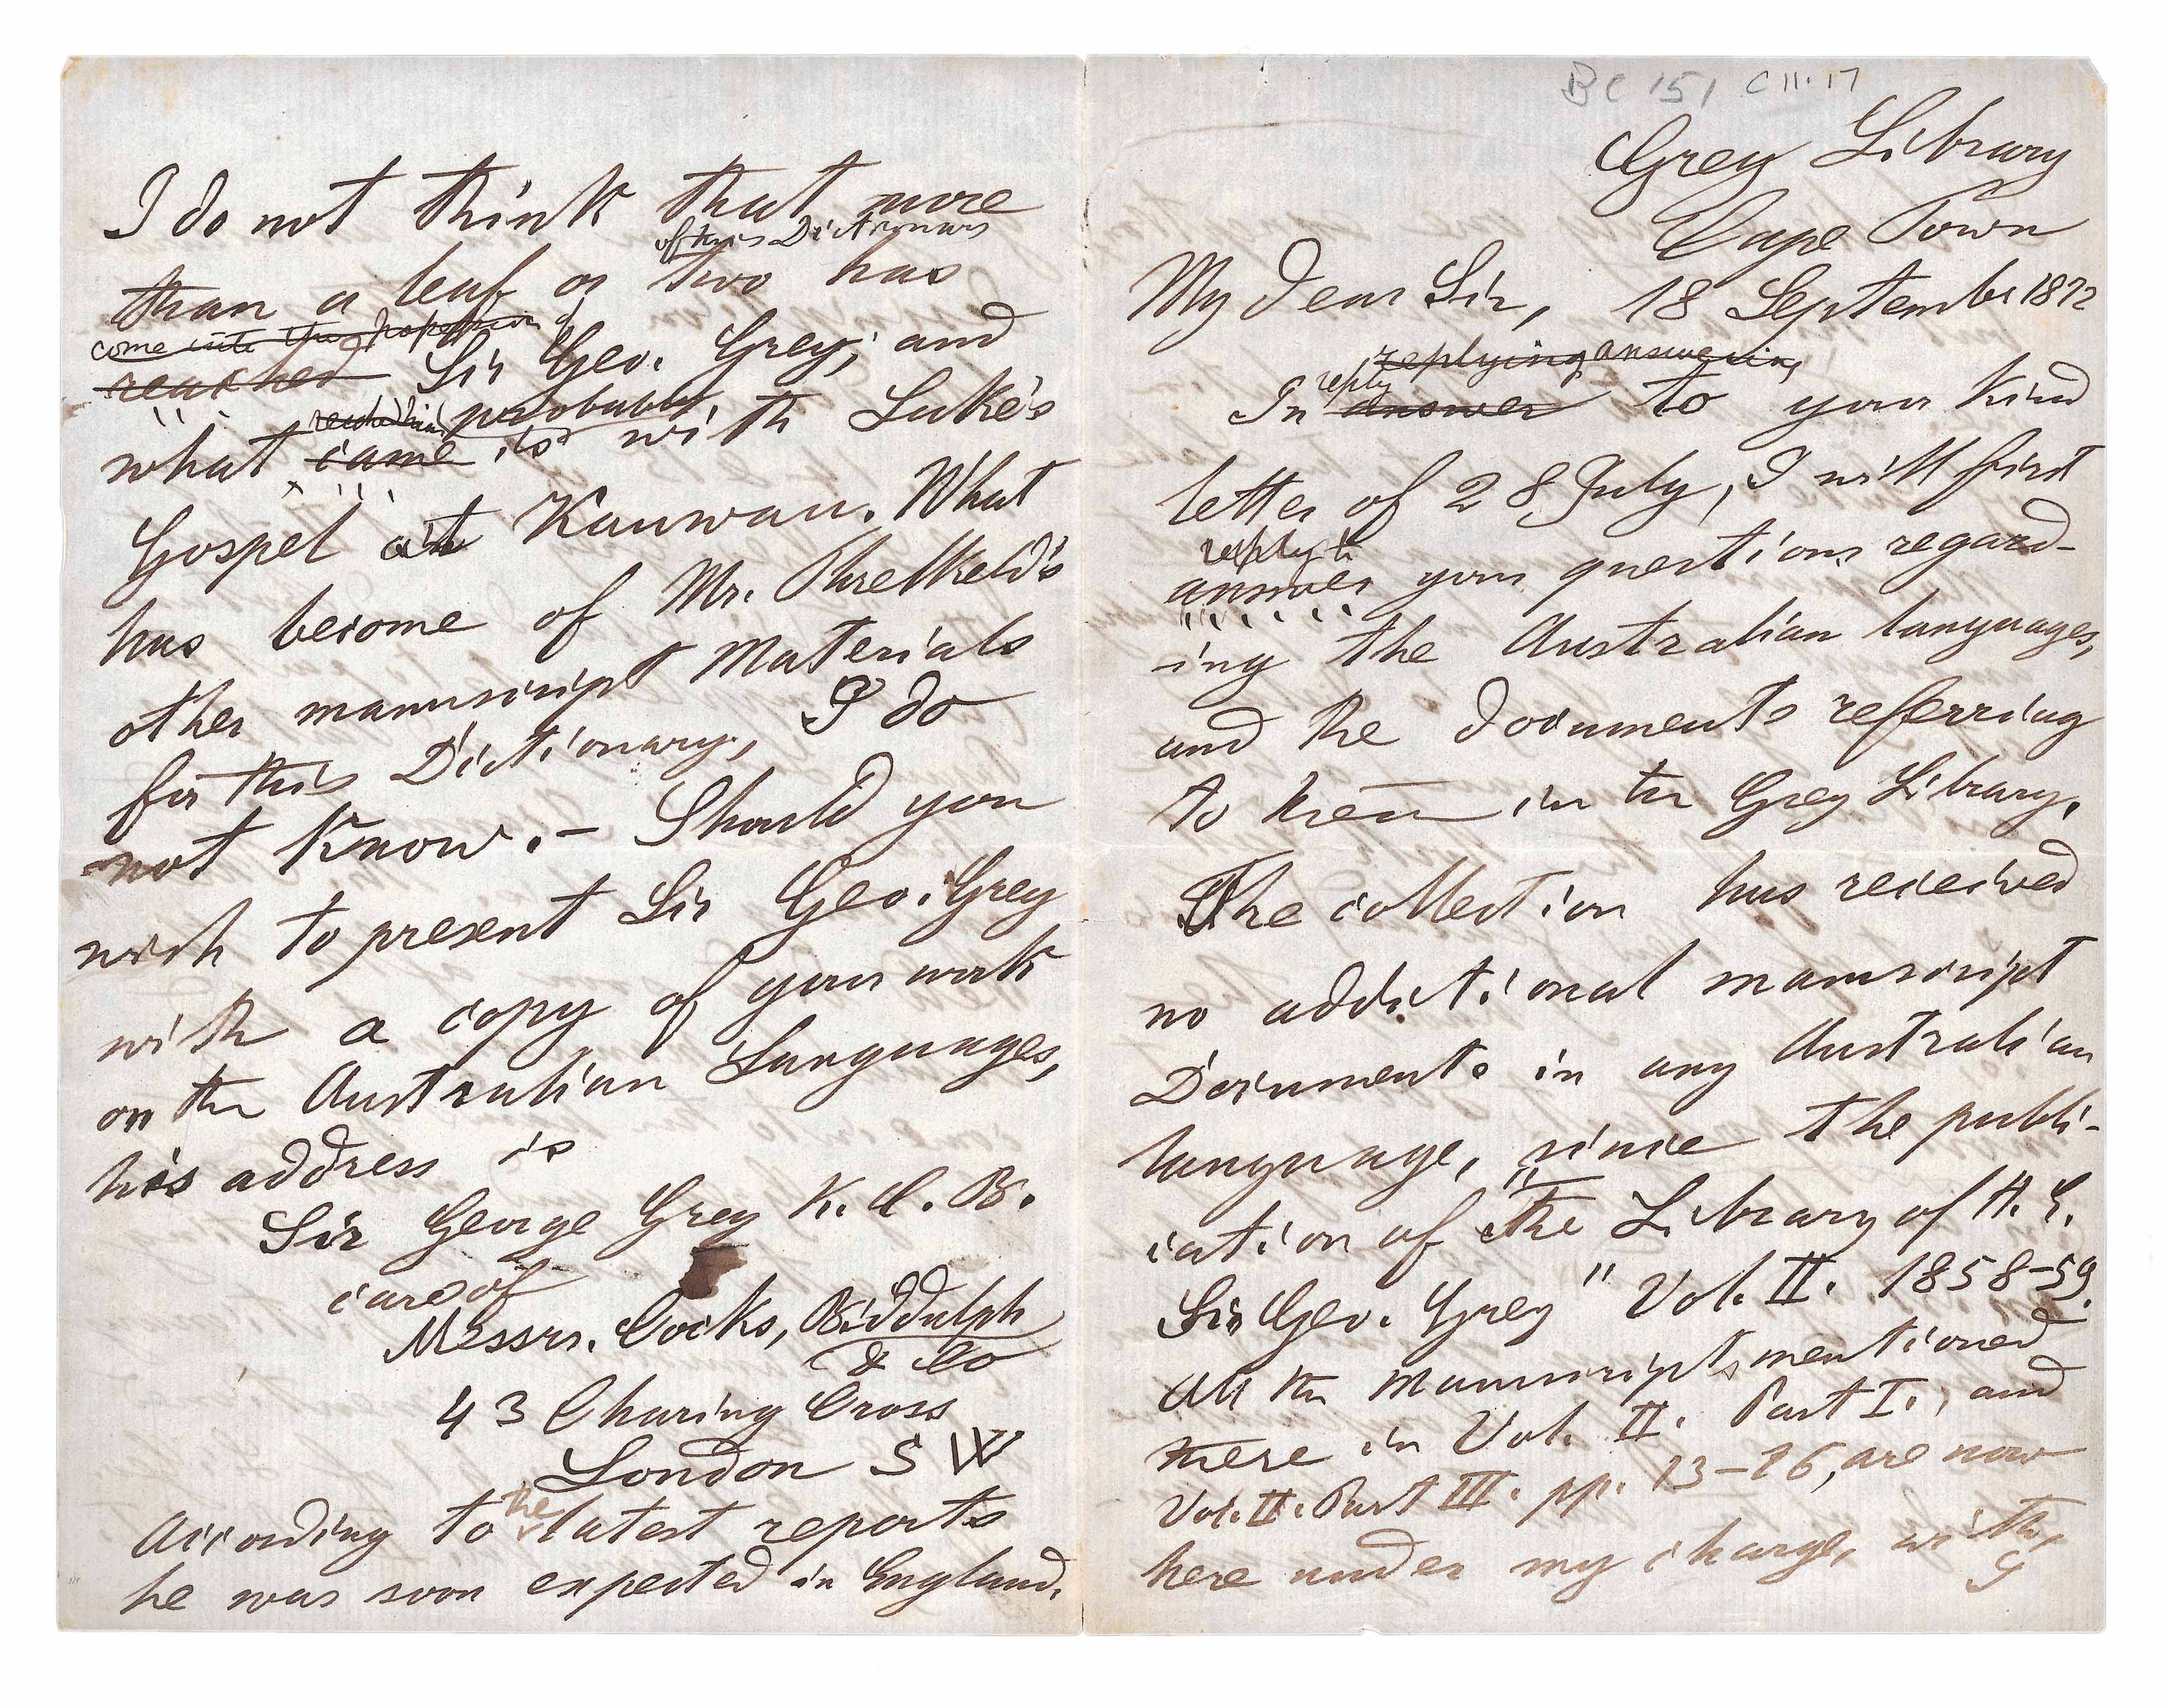 BC 151 C 11.17
Grey Library
Cape Town
My dear Sir, 18 September 1872
replying answering
In reply answer to your kind
letter of 28 July, I will first
reply to
answer your questions regard-
ing the Australian languages,
and the documents referring
to them in the Grey Library.
The collection has received
no additional manuscript
Documents in any Australian
language, since the publi-
cation of "The Library of H. E.
Sir Geo. Grey" Vol. II. 1858-59.
All the manuscripts mentioned
there in Vol. II. Part I., and
Vol. II. Part III. pp. 13-16, are now
here under my charge, with,
I do not think that more
of this Dictionary
than a leaf or two has
come into the possession of
reached Sir Geo. Grey; and
reached him probably
what came is with Luke's
Gospel at Kauwau. What
has become of Mr. Threlkeld's
other manuscript Materials
for this Dictionary, I do
not know. – Should you
wish to present Sir Geo. Grey
with a copy of your work
on the Australian Languages,
his address is
Sir George Grey K. C. B.
care of
Messrs. Cocks, Biddulph
& Co
43 Charing Cross
London S W
According to the latest reports
he was soon expected in England.